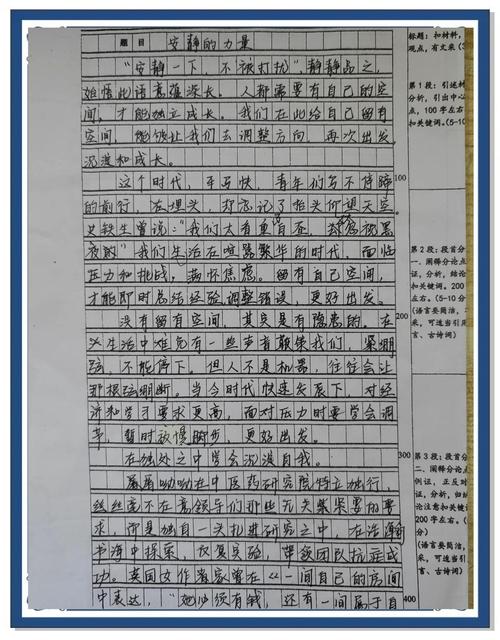 题目 安静的力量
标题:扣材料,
观点,有文采(
"安静一下,不被打扰",静静品之,
始悟此话意蕴深长。人都需要有自己的空
间,才能独立成长。我们在此给自己留有
空间,能够让我们去调整方向,再次出发,
沉淀和成长。
第1段:引述材
分析,引出中心
点,100字左右
和关键词。(5-10
100
这个时代,车马快,青年们马不停蹄
的前行,在埋头,却忘记了抬头仰望天空
史铁生曾说:"我们太看重白昼,却忽视黑
夜的"我们生活在喧嚣繁华的时代,面临
压力和挑战,满怀焦虑。留有自己空间,
才能即时总结经验,调整错误,更好出发。
200
没有留有空间,其实是有隐患的。在
生活中难免有一些声音鞭策我们,紧绷
弦,不能停下。但人不是机器,往往会让
那根弦绷断。当今时代快速发展下,对经
济和学习要求更高,面对压力时要学会调
节,暂时放慢脚步,更好出发。
第2段:段首分
一、阐释分论点
证,分析,结论
和关键词。200
左右。(5-10分
(语言要简洁,
来,可适当引用
言、古诗词)
300
在独处之中学会沉淀自我。
屠呦呦在中医药研究院特立独行,
丝丝毫不在意领导们那些无关紧要的要
求,而是独自一头扎进研究之中,在浩瀚
书海中探索,反复实验,带领团队抗疟成
功。英国女作家曾在《一间自己的房间
中表达,"她必须有钱,还有一间属于自
400
第3段:段首分
二、阐释分论点
例证,正反对
证,分析,归结
论注意扣关键
200字左右。(
分)
(语言要简洁,
来,可适当引用
言、古诗词)